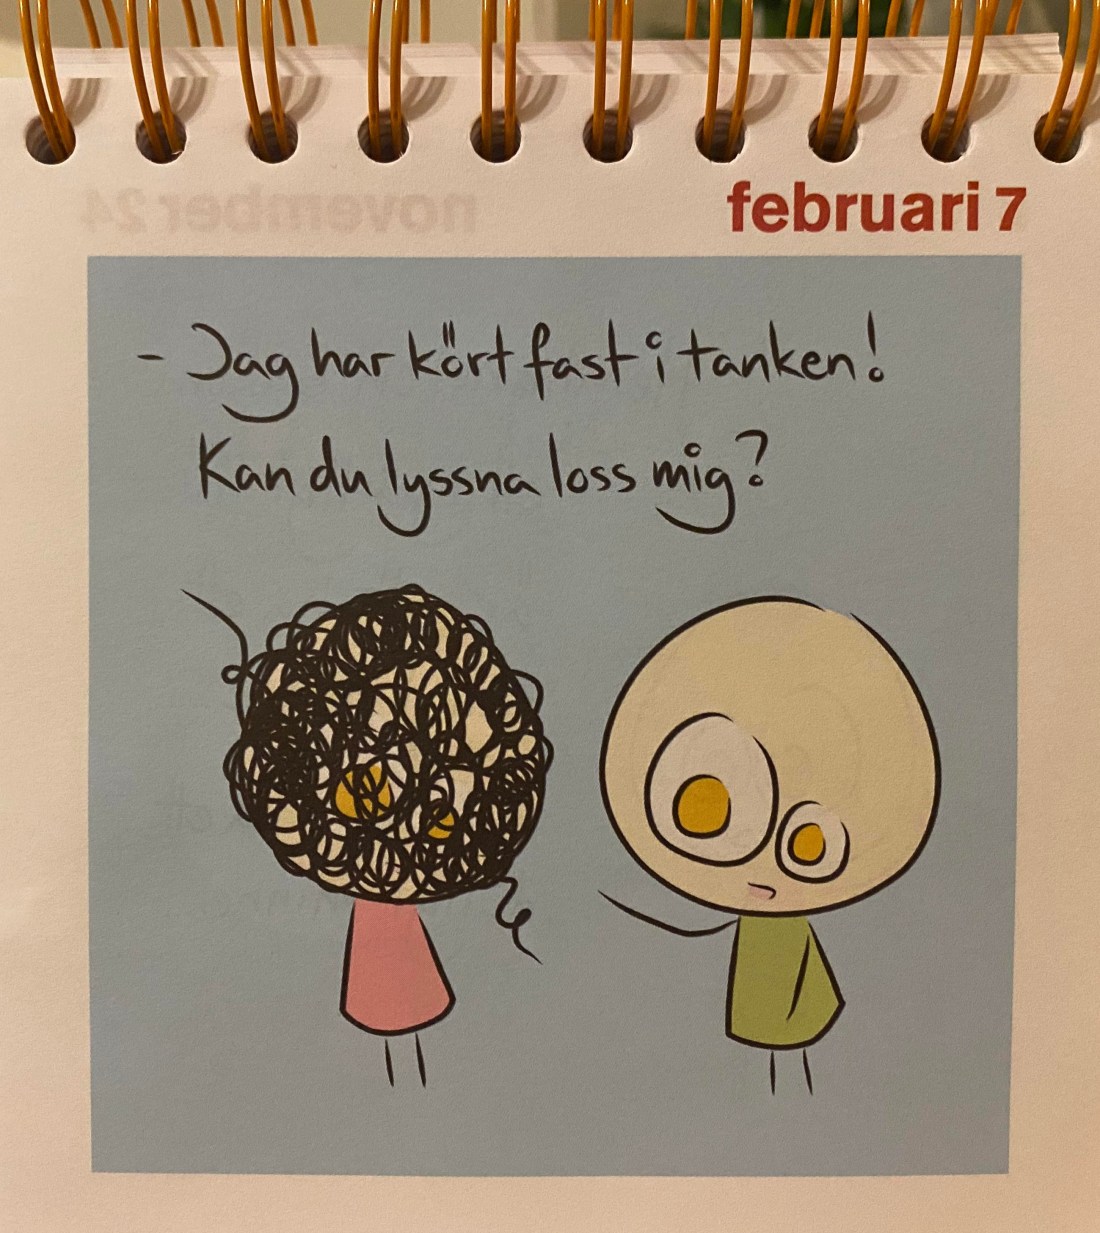 februari 7
- Jag har kört fast i tanken!
Kan du lyssna loss mig?
november 24